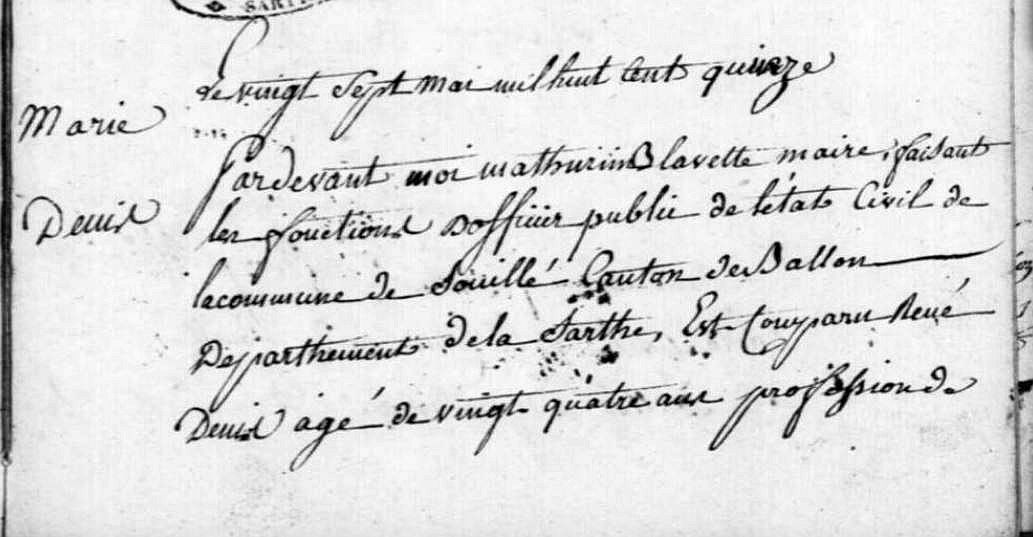 SARTHE
Le vingt Sept mai mil huit Cent quinze
Marie
Denis
Pardevant moi mathurin Blavette maire, faisant
les fonctions Dofficier public de létat Civil de
lacommune de Souillé Canton de Ballon
Departhement dela Sarthe, Est Comparu René
Denis agé de vingt quatre ans professionde